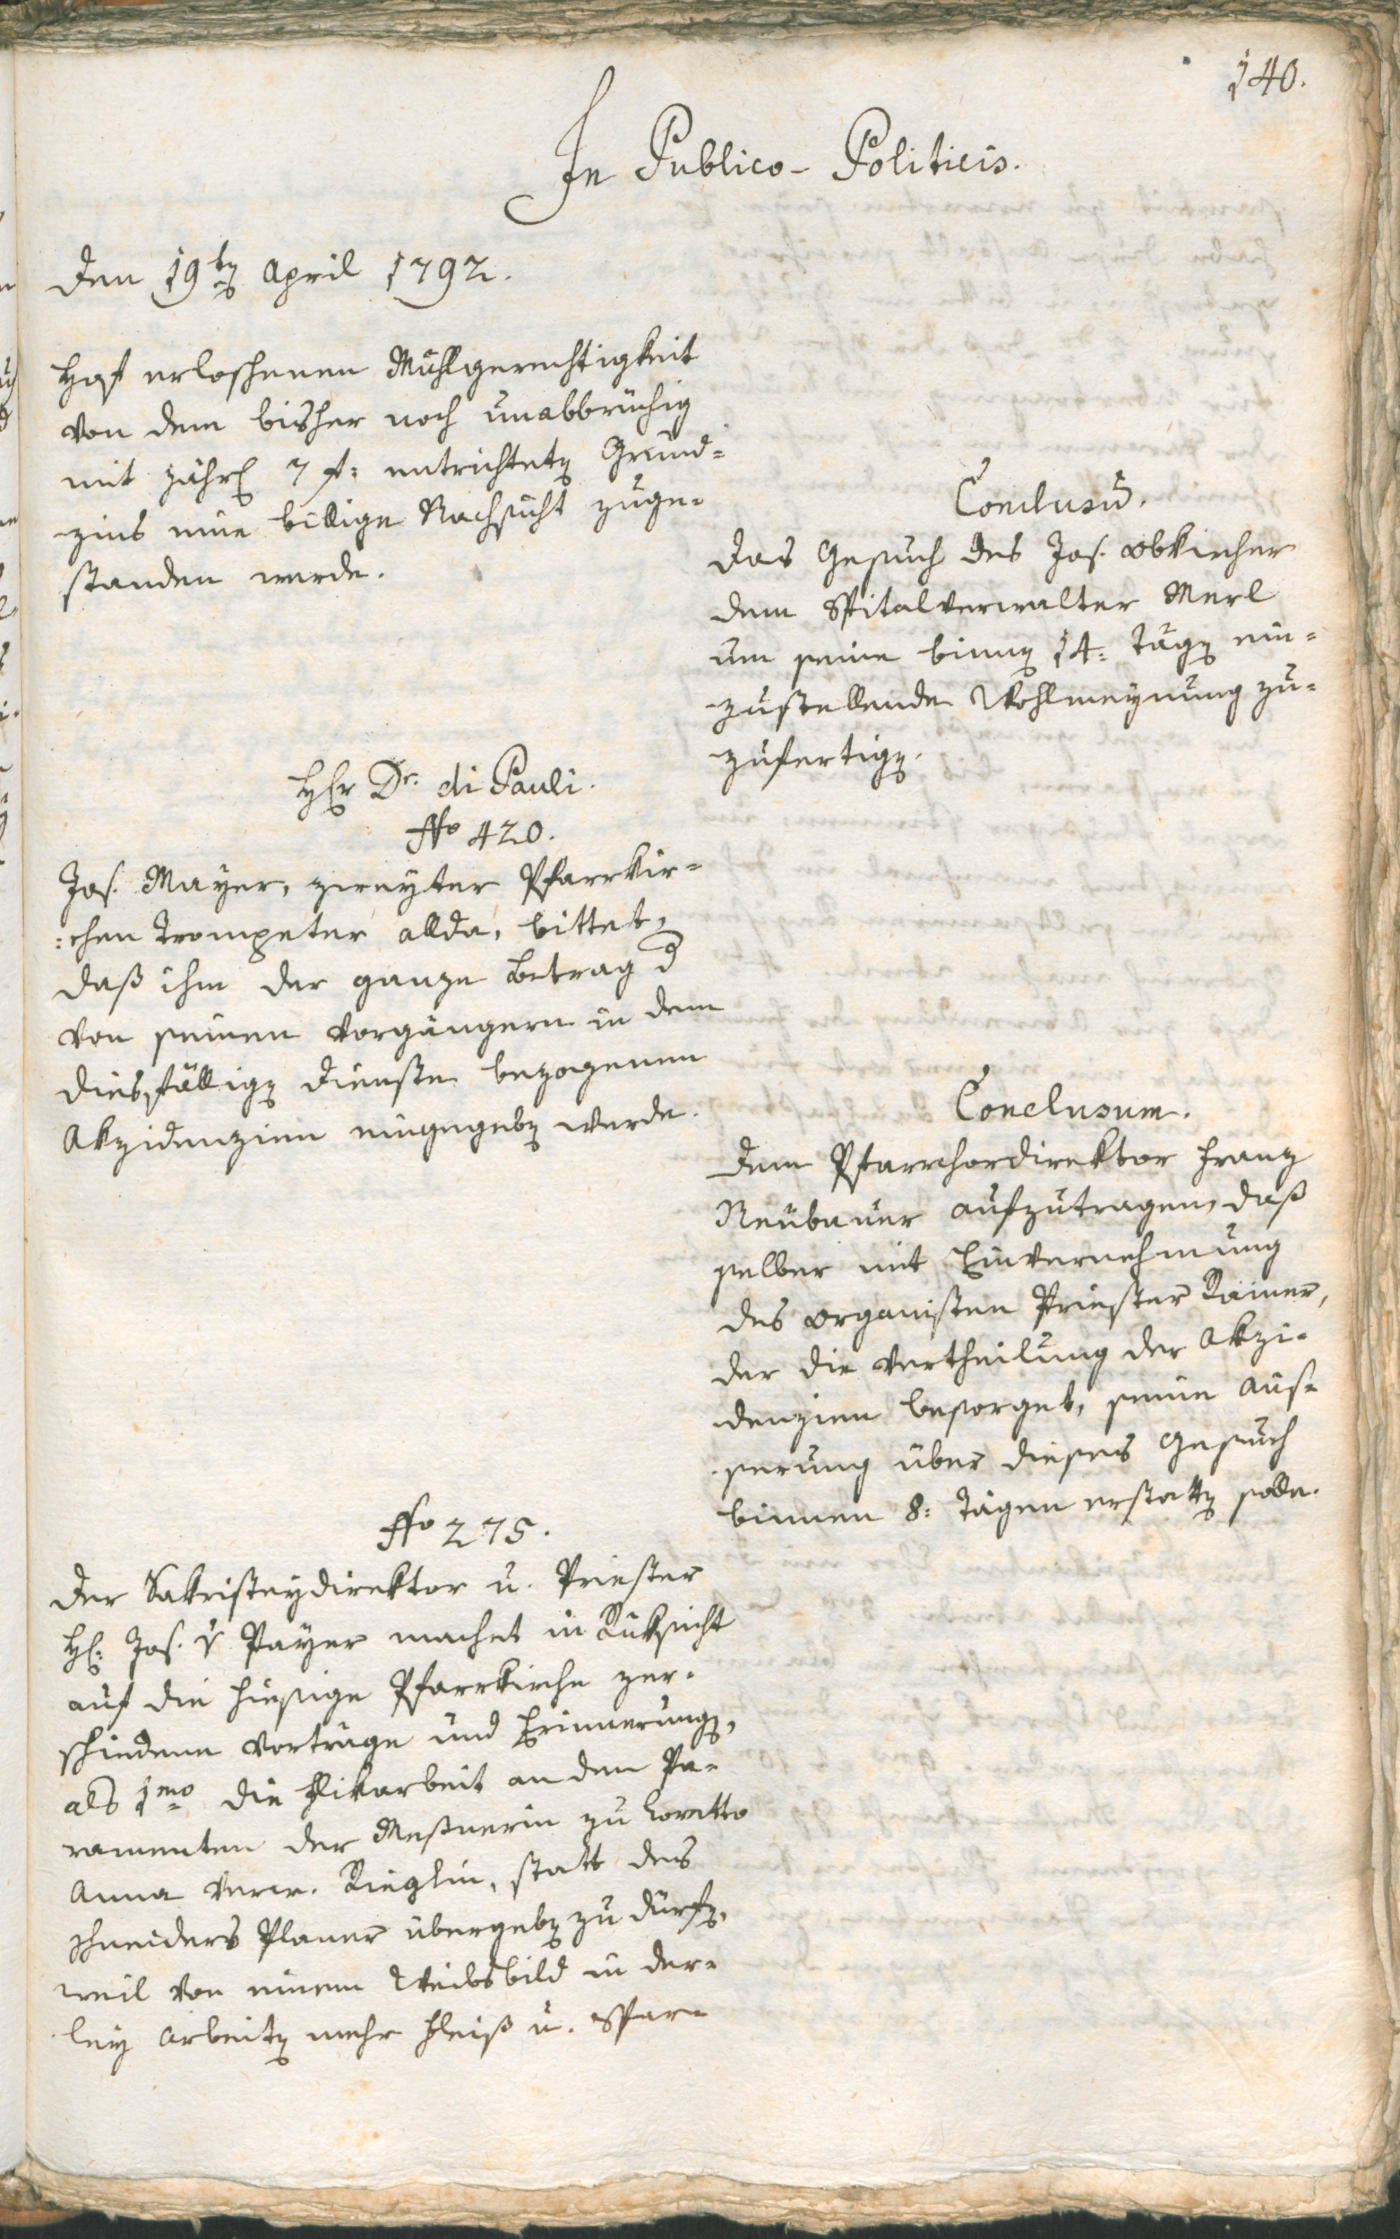 140.
In Publico-Politicis.
Den 19ten April 1792.
Hof erloschenen Mühlgerechtigkeit
von dem bisher noch unabbrüchig
mit jährl 7 f: entrichteten Grund=
zins eine billige Nachsicht zuge=
standen werde.
Conclusū.
Das Gesuch des Jos. Obkircher
dem Spitalverwalter Merl
um seine binnen 14: Tägen ein=
zustellende Wohlmeynung zu=
zufertigen.
Hr Dr. di Pauli.
No 420.
Jos. Mayer, zweyter Pfarrkir=
:chen Trompeter allda, bittet,
daß ihm der ganze Betrag d
von seinen Vorgängern in dem
diesfälligen Dienste bezogenen
Akzidenzien eingegeben werde.
Conclusum.
Dem Pfarrchordirektor Franz
Neubauer aufzutragen, daß
selber mit Einvernehmung
des Organisten Priester Rainer,
der die Vertheilung der Akzi=
denzien besorget, seine Aus=
serung über dieses Gesuch
binnen 8: Tägen erstatten solle.
No 275.
Der Sakristeydirektor u. Priester
H: Jos. v Payer machet in Rüksicht
auf die hiesige Pfarrkirche ver=
schiedene Vorträge und Erinnerungen,
als 1mo die Flikarbeit an den Pa=
ramenten der Meßnerin zu Loretto
Anna Verw. Rieglin, statt des
Schneiders Planer übergeben zu dürfen,
weil von einem Weibsbild in der=
ley Arbeiten mehr Fleiß u. Spar=